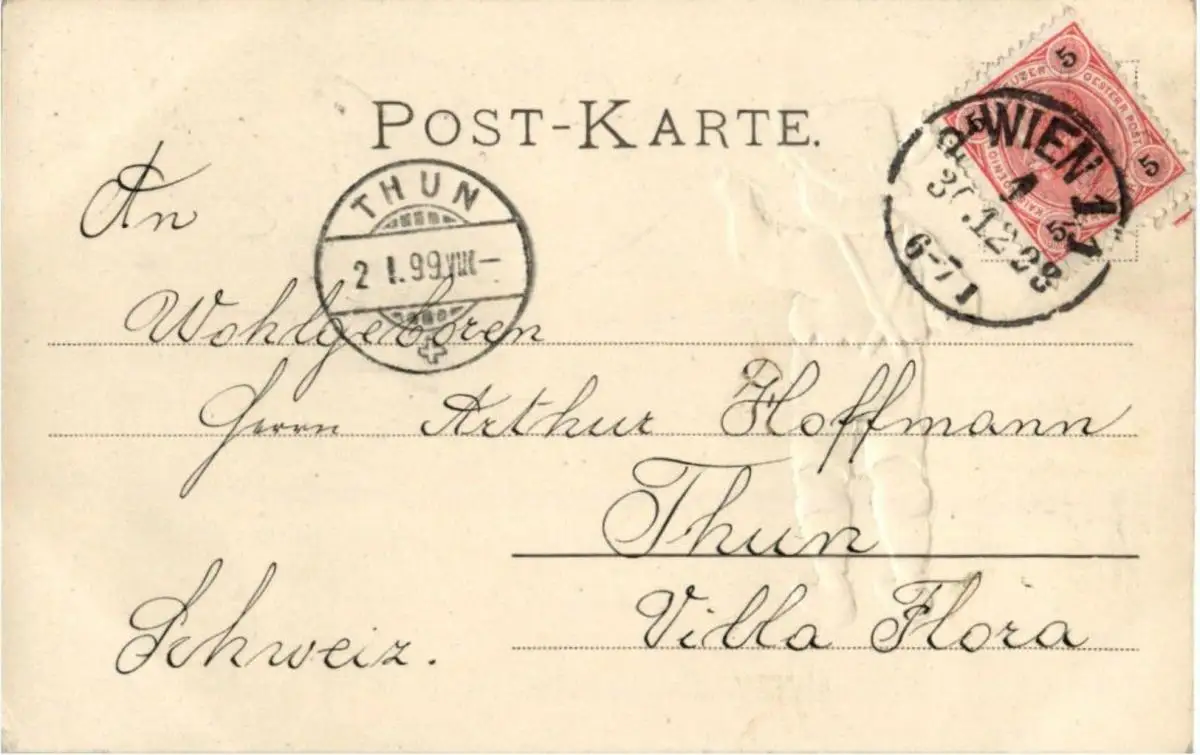 POST-KARTE.
5
KREUZER
OESTERR. POST
5
5
5
WIEN 1
1
30.12.98
6-7 I
THUN
2 I.99.VIII-
An
Wohlgeboren
Herrn Arthur Hoffmann
Thun
Villa Flora
Schweiz.